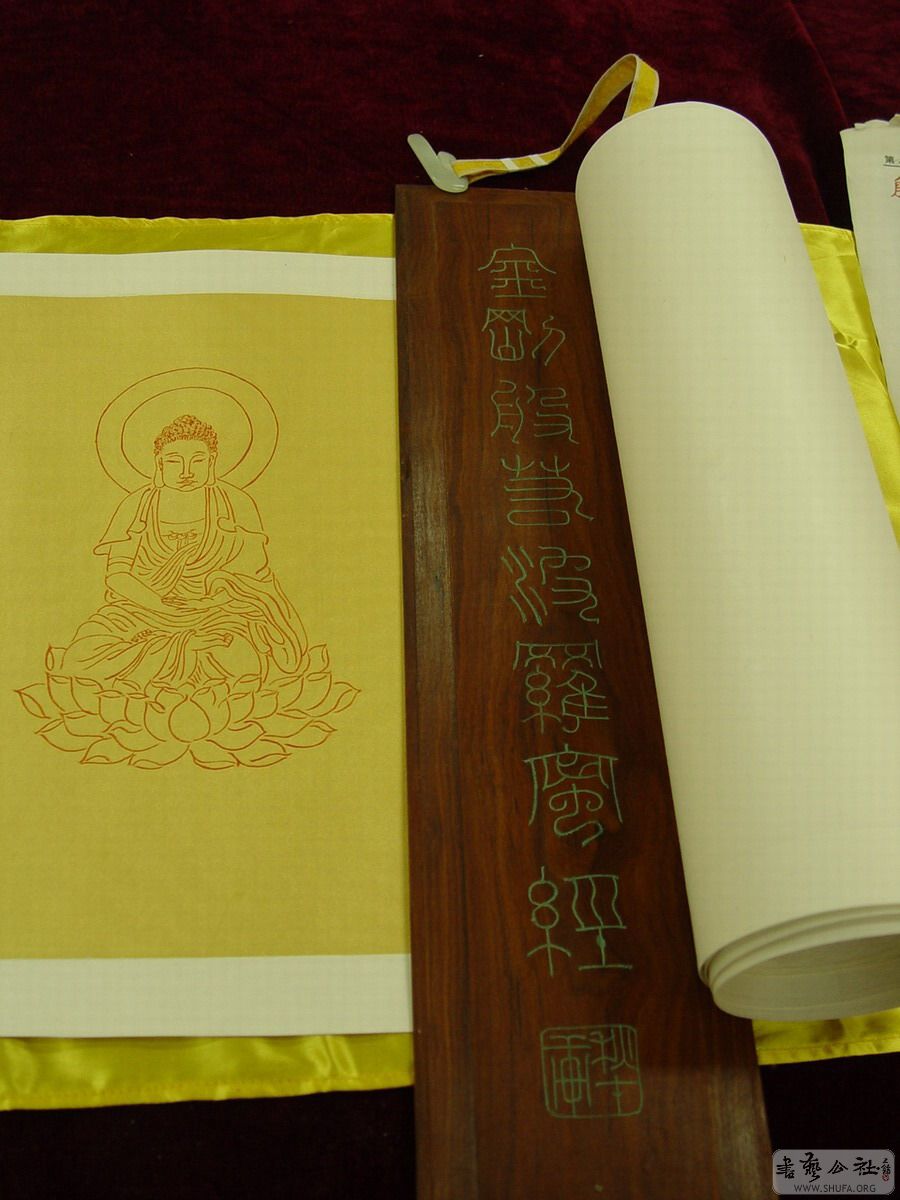 金剛般若波羅蜜經
秋雨
第
書藝公社
WWW.SHUFA.ORG